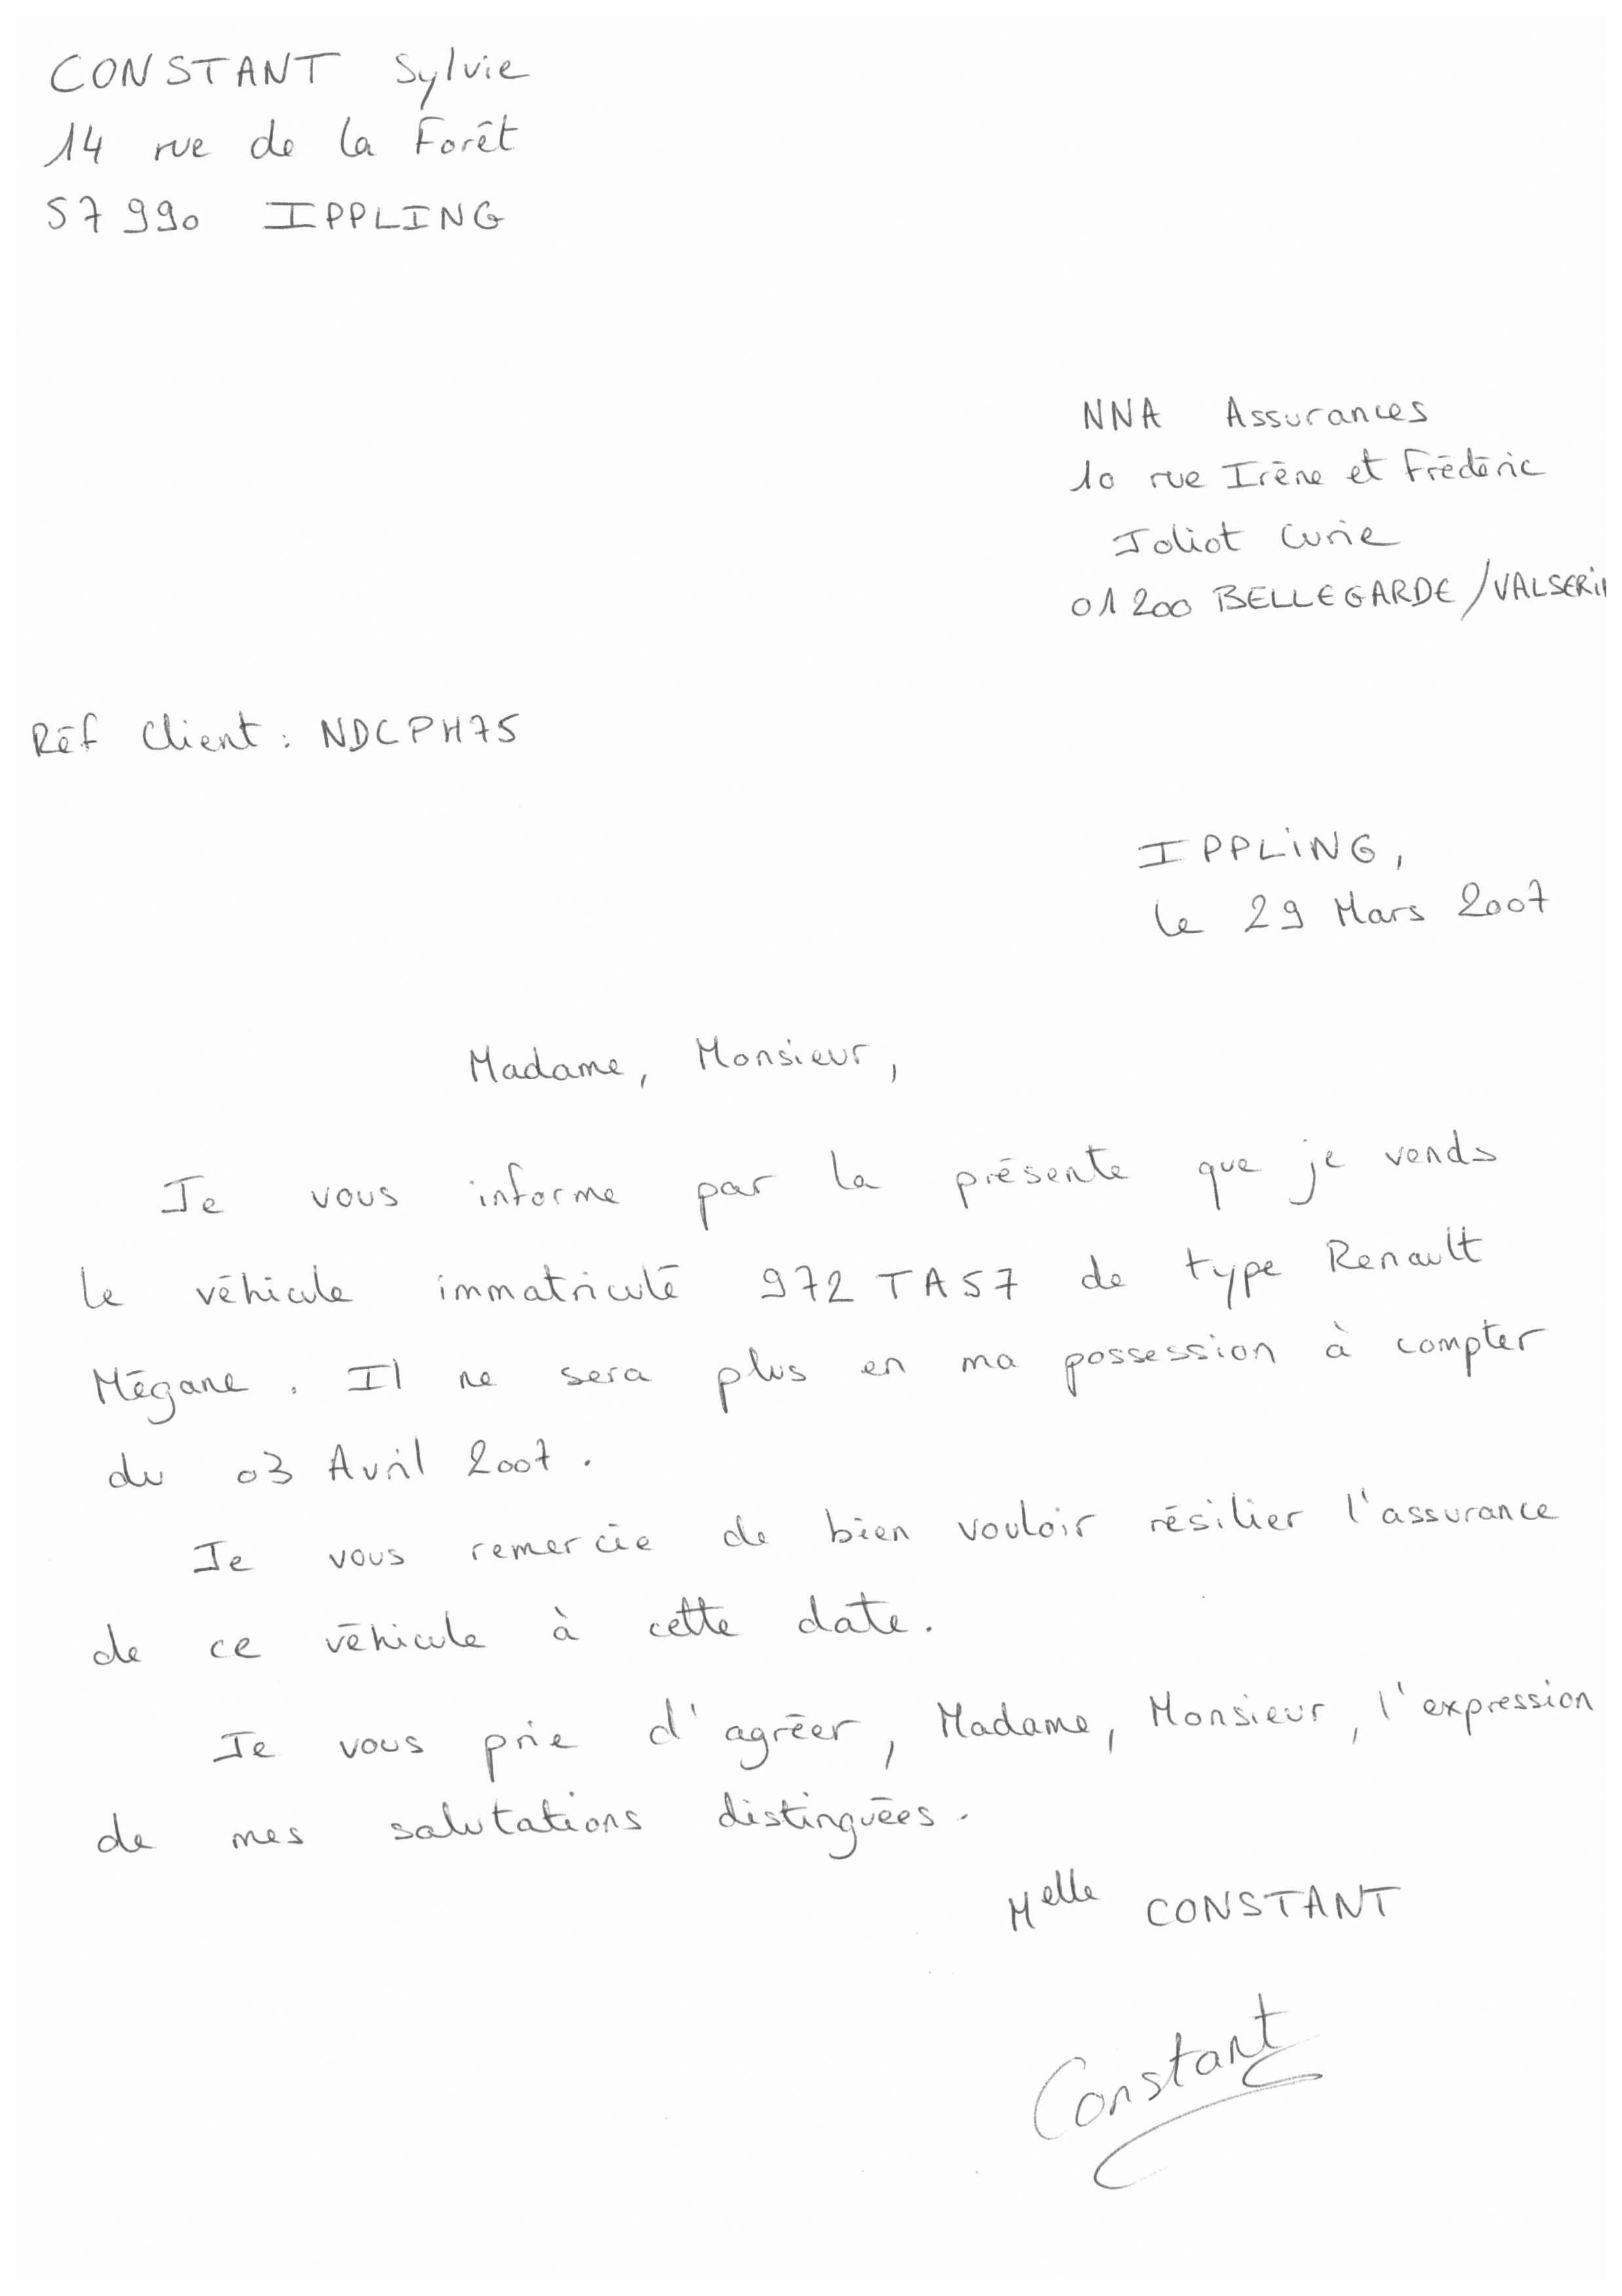 CONSTANT Sylvie
14 rue de la Forêt
57 990 IPPLING
NNA Assurances
10 rue Irène et Frédéric
Joliot Curie
01 200 BELLEGARDE /VALSERIN
Réf Client : NDCPH75
IPPLING,
le 29 Mars 2007
Madame, Monsieur,
Je vous informe par la présente que je vends
le véhicule immatriculé 972 TA57 de type Renault
Mégane. Il ne sera plus en ma possession à compter
du 03 Avril 2007.
Je vous remercie de bien vouloir résilier l'assurance
de ce véhicule à cette date.
Je vous prie d'agréer, Madame, Monsieur, l'expression
de mes salutations distinguées.
Melle CONSTANT
Constant